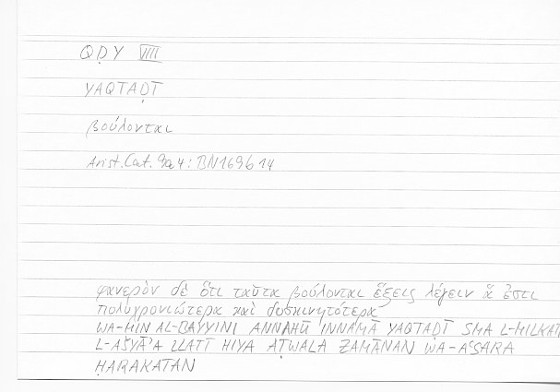 QḌY V̅I̅I̅I̅
YAQTAḌĪ
βούλονται
Arist. Cat. 9a4 : BN169b14
φανερὸν δὲ ὅτι ταῦτα βούλονται ἕξεις λέγειν ἅ ἐστι
πολυχρονιώτερα καὶ δυσκινητότερα
WA-MIN AL-BAYYINI ANNAHŪ INNAMĀ YAQTAḌĪ SMA L-MILKAT
L-AŠYĀʾA LLATĪ HIYA AṬWALA ZAMĀNAN WA-AʿSARA
ḤARAKATAN